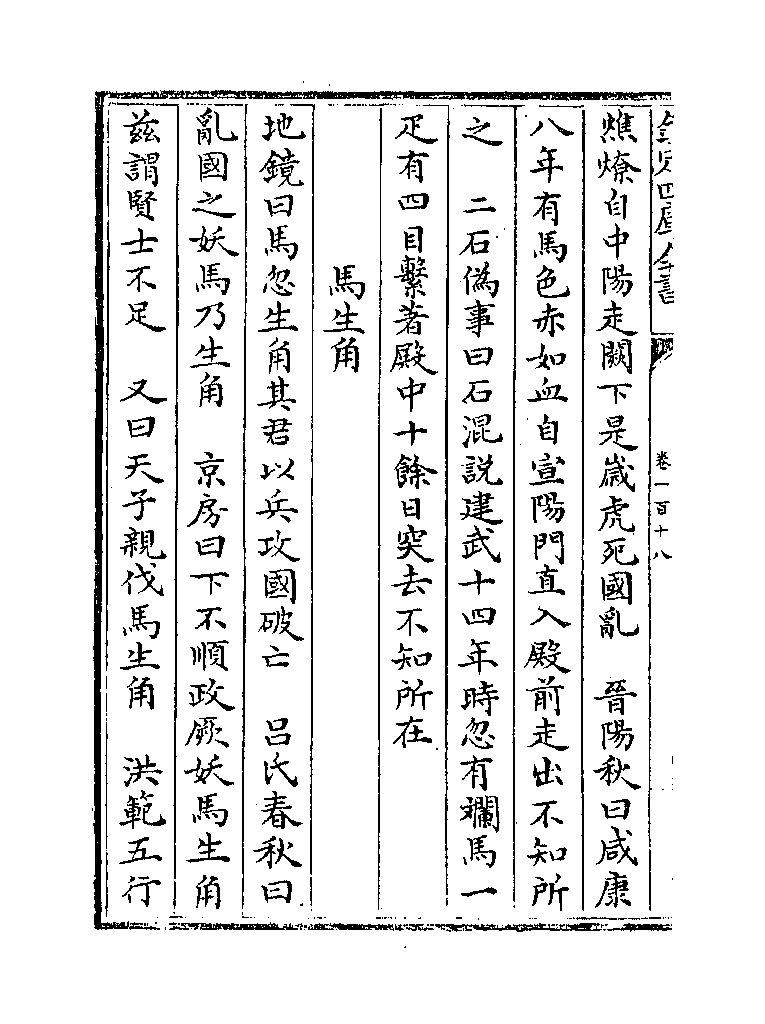 欽定四庫全書 卷一百十八
燋燎自中陽走闕下是歲虎死國亂 晉陽秋曰咸康
八年有馬色赤如血自宣陽門直入殿前走出不知所
之 二石偽事曰石混説建武十四年時忽有斕馬一
疋有四目繫著殿中十餘日突去不知所在
馬生角
地鏡曰馬忽生角其君以兵攻國破亡 吕氏春秋曰
亂國之妖馬乃生角 京房曰下不順政厥妖馬生角
兹謂賢士不足 又曰天子親伐馬生角 洪範五行